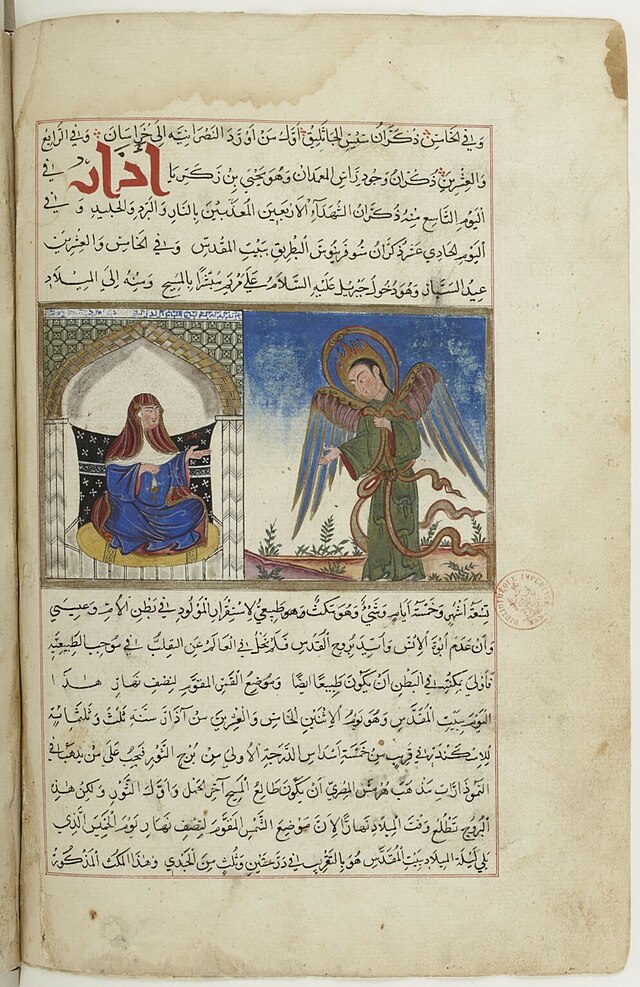 وفي الخامس ذكران سنيس الجاثليق أول من أورد النصرانية إلى خراسان وفي الرابع
والعشرين ذكران وجود رأس المعمدان وهو يحيى بن زكريا
اذار
في
اليوم التاسع منه ذكران الشهداء الأربعين المعذبين بالنار والبرد والجليد وفي
اليوم الحادي عشر ذكران سوفرنيوس البطريق ببيت المقدس وفي الخامس والعشرين
عيد السبار وهو دخول جبريل عليه السلام على مريم مبشرا بالمسيح ومنه إلى الميلاد
تسعة أشهر وخمسة أيام وشيء وهو مكث وهو طبيعي لاستقرار المولود في بطن الأم وعيسى
وأن عدم أبوة الإنس وأيد بروح القدس فلم يخل في العالم عن التقلب في موجب الطبيعة
فأولى بمكثه في البطن أن يكون طبيعيا أيضا وموضع القمر المقوم لنصف نهار هذا
اليوم ببيت المقدس وهو يوم الاثنين الخامس والعشرين من آذار سنة ثلث وثلثمائة
للإسكندر في قريب من خمسة أسداس الدرجة الأولى من برج الثور فيجب على من يذهب في
النموذارات مذهب هرمس المصري أن يكون طالع المسيح آخر الحمل وأول الثور ولكن هذه
البروج تطلع وقت الميلاد نهارا لأن موضع الشمس المقوم لنصف نهار يوم الخميس الذي
يلي ليلة الميلاد ببيت المقدس هو بالتقريب في درجتين وثلث من الجدي وهذا المكث المذكور